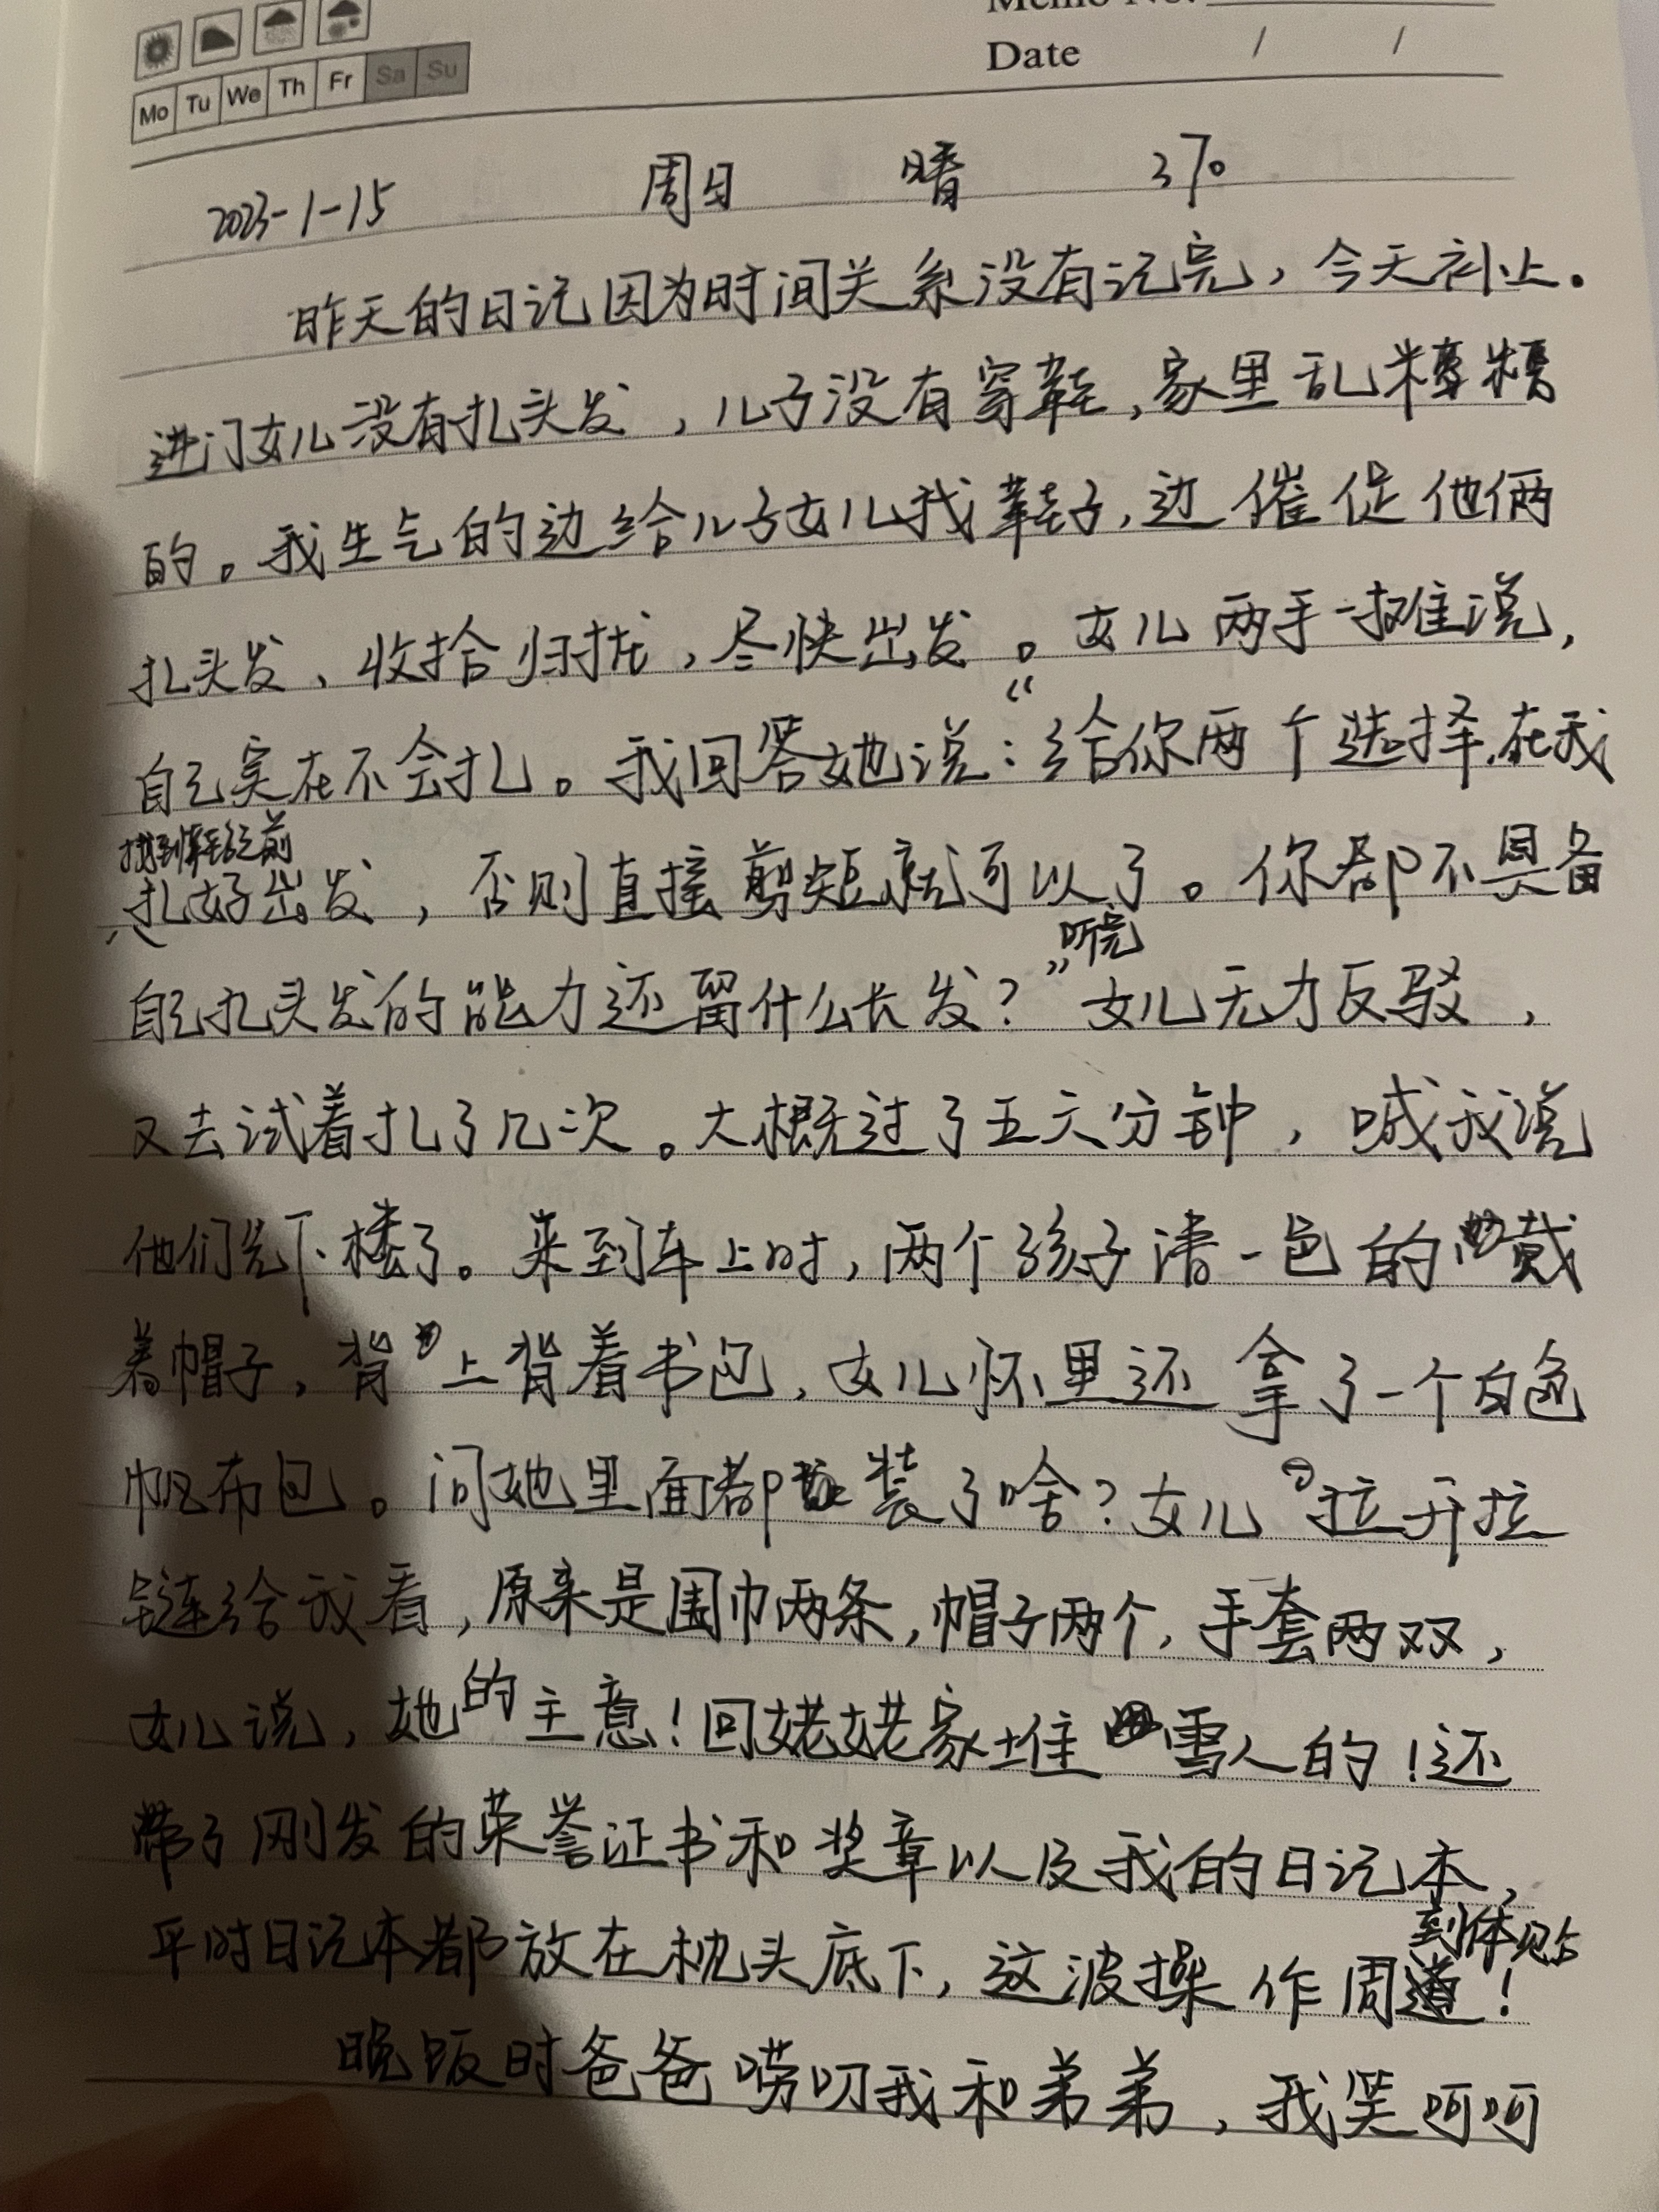 Memo No.
Date / /
Mo Tu We Th Fr Sa Su
2023-1-15 周日 晴 370
昨天的日记因为时间关系没有记完，今天补上。
进门女儿没有扎头发，儿子没有穿鞋，家里乱糟糟
的。我生气的边给儿子女儿找鞋子，边催促他俩
扎头发、收拾归拢，尽快出发。女儿两手一摊说，
自己实在不会扎。我回答她说：“给你两个选择，在我
找到鞋子之前
扎好出发，否则直接剪短就可以了。你都不具备
自己扎头发的能力还留什么长发？”听完女儿无力反驳，
又去试着扎了几次。大概过了五六分钟，喊我说
他们先下楼了。来到车上时，两个孩子清一色的戴
着帽子，背上背着书包，女儿怀里还拿了一个白色
帆布包。问她里面都装了啥？女儿拉开拉
链给我看，原来是围巾两条，帽子两个，手套两双，
女儿说，她的主意！回姥姥家堆雪人的！还
带了刚发的荣誉证书和奖章以及我的日记本，
平时日记本都放在枕头底下，这波操作周到体贴！
晚饭时爸爸唠叨我和弟弟，我笑呵呵